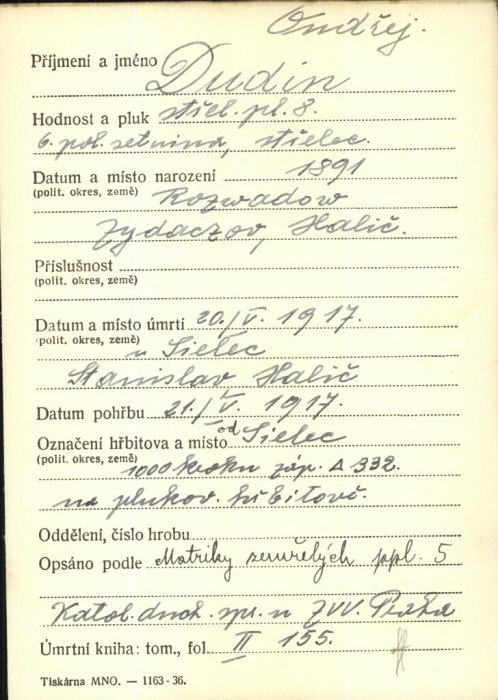 Ondřej.
Příjmení a jméno Dudin
Hodnost a pluk střel. pl. 8.
6. pol. setnina, střelec.
Datum a místo narození 1891
(polit. okres, země) Rozwadow
Zydaczov, Halič.
Příslušnost
(polit. okres, země)
Datum a místo úmrtí 20./V. 1917.
(polit. okres, země) u Sielec
Stanislav Halič
Datum pohřbu 21./V. 1917.
Označení hřbitova a místo od Sielec
(polit. okres, země) 1000 kroku záp. Δ 332.
na plukov. hřbitově.
Oddělení, číslo hrobu
Opsáno podle Matriky zemřelých ppl. 5
Katol. duch. spr. u ZVV. Praha
Úmrtní kniha: tom., fol. II 155.
Tiskárna MNO. — 1163-36.